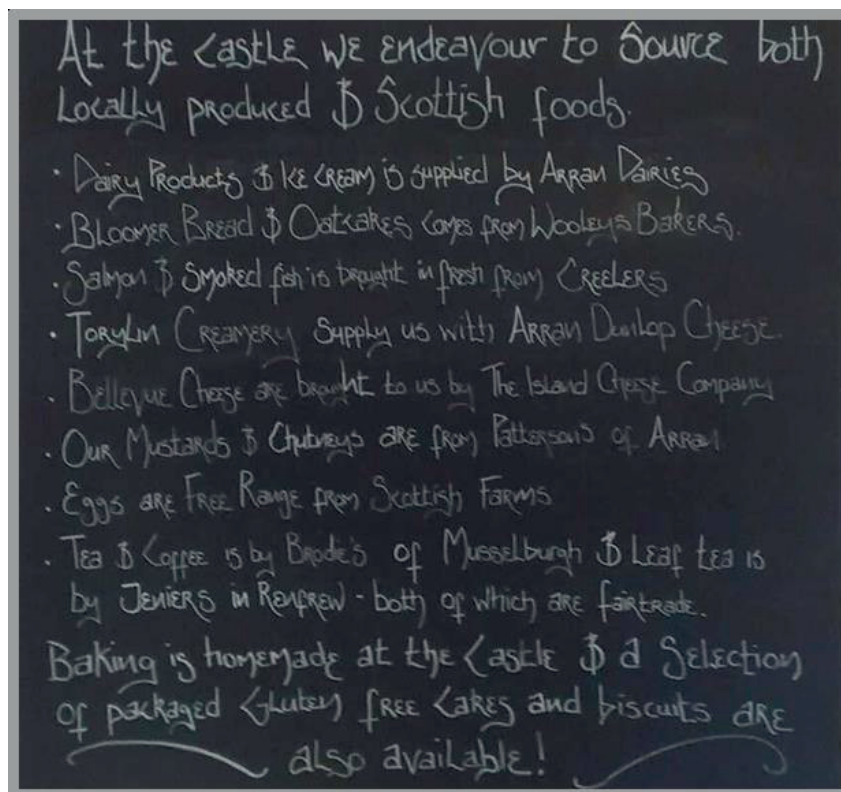 At the Castle we endeavour to Source both
Locally produced & Scottish foods.
· Dairy Products & Ice Cream is supplied by Arran Dairies
· Bloomer Bread & Oatcakes comes from Wooleys Bakers.
· Salmon & Smoked fish is brought in fresh from Creelers
· Torylin Creamery Supply us with Arran Dunlop Cheese.
· Bellevue Cheese are brought to us by The Island Cheese Company
· Our Mustards & Chutneys are from Pattersons of Arran
· Eggs are Free Range from Scottish Farms
· Tea & Coffee is by Brodie's of Musselburgh & Leaf tea is
by Jeniers in Renfrew - both of which are fairtrade.
Baking is homemade at the Castle & a Selection
of packaged Gluten free Cakes and biscuits are
also available!